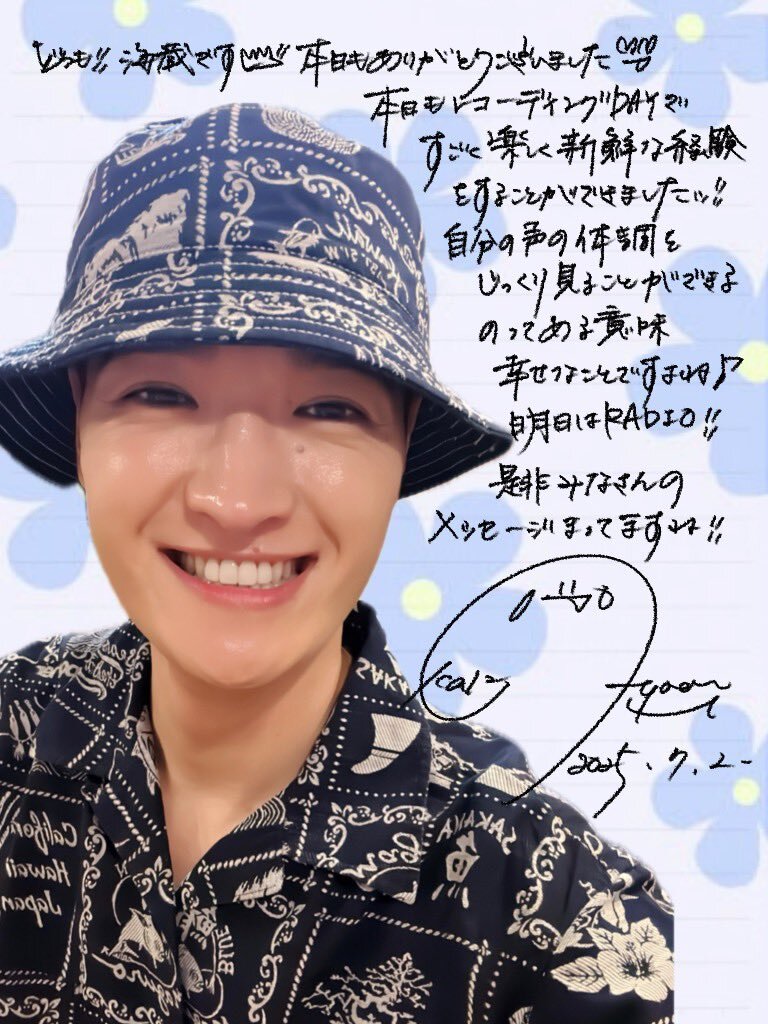 どうも!! 海蔵です 本日もありがとうございました
本日もレコーディングDAYで
すごく楽しく新鮮な経験
をすることができましたッ!!
自分の声の体調を
じっくり見ることができる
のってある意味
幸せなことですよね♪
明日はRADIO!!
是非みなさんの
メッセージまってますね!!
2025.7.2-
Hawaii
SAKANA
California
Hawaii
Japan
BLUE